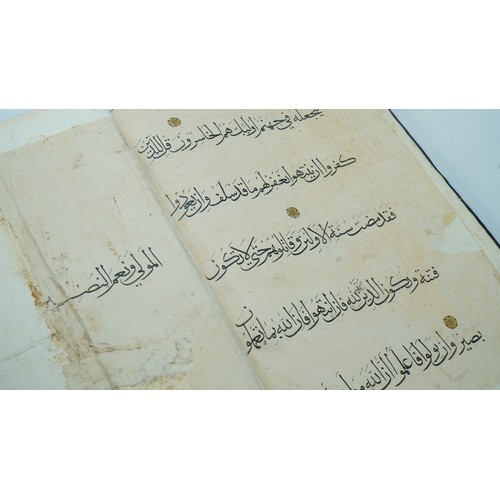 يجعله في جهنم اوليك هم الخاسرون قل للذين
كفروا ان ينتهوا يغفر لهم ما قد سلف وان يعودوا
فقد مضت سنة الاولين وقاتلوهم حتى لا تكون
فتنة ويكون الدين كله لله فان انتهوا فان الله بما يعملون
بصير وان تولوا فاعلموا ان الله
المولى ونعم النصير